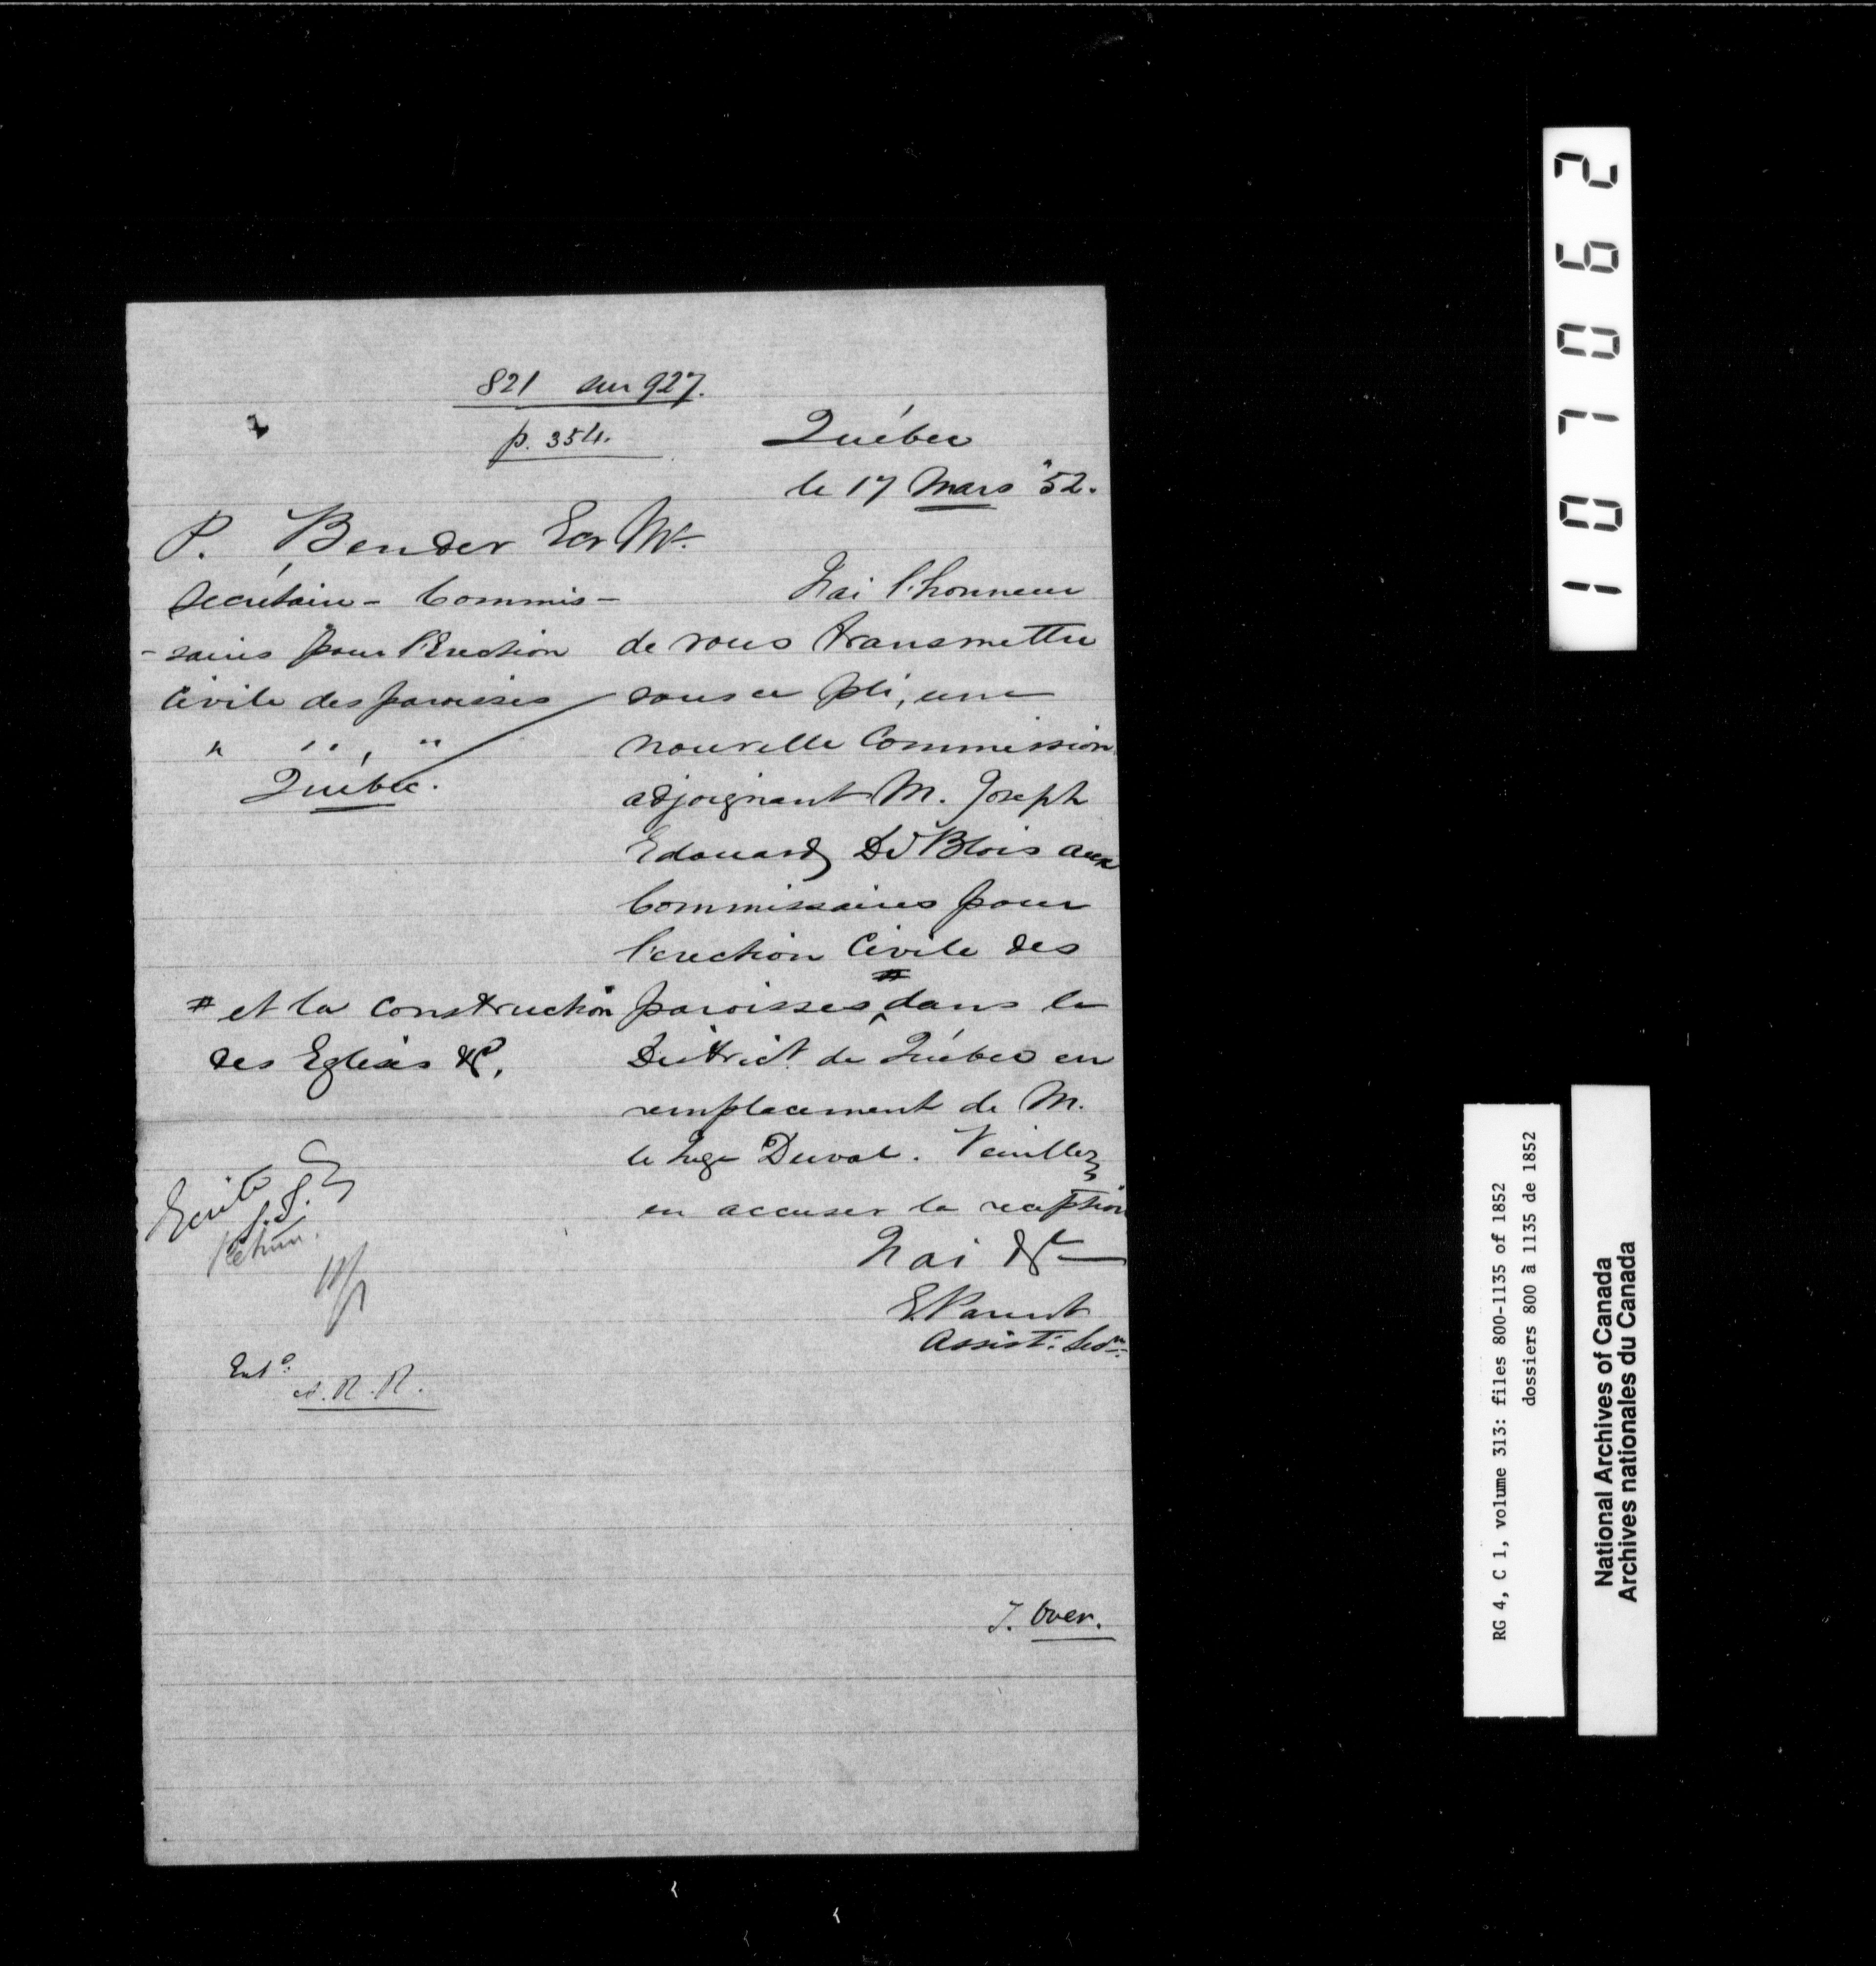 821 sur 927.
p. 354.
Québec
le 17 Mars '52.
P. Bender Ecr
Secrétaire - Commis-
-saires pour l'Erection
Civile des paroisses
" " , "
Québec.
Mr.
J'ai l'honneur
de vous transmettre
sous ce pli, une
nouvelle Commission
adjoignant M. Joseph
Edouard De Blois aux
Commissaires pour
l'erection Civile des
paroisses # dans le
District de Québec en
remplacement de M.
le Juge Duval. Veuillez
en accuser la reception
J'ai &c
E. Parent
Assist. Sec.
# et la Construction
des Eglises &c.
Ent.
T. Over.
107062
RG 4, C 1, volume 313: files 800-1135 of 1852
dossiers 800 à 1135 de 1852
National Archives of Canada
Archives nationales du Canada